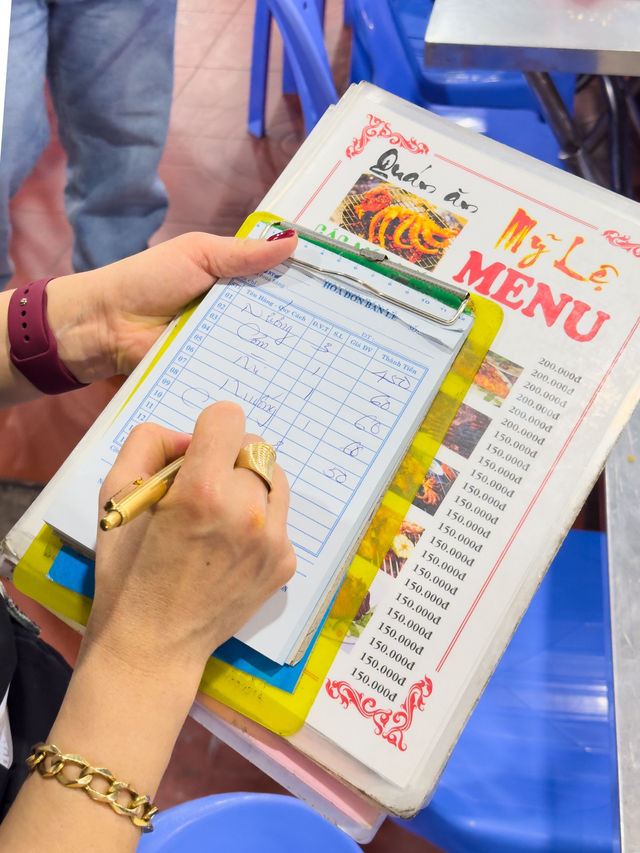 Quán ăn
Mỹ Lệ
MENU
200.000đ
200.000đ
200.000đ
200.000đ
200.000đ
150.000đ
150.000đ
150.000đ
150.000đ
150.000đ
150.000đ
150.000đ
150.000đ
150.000đ
150.000đ
150.000đ
150.000đ
150.000đ
150.000đ
150.000đ
HÓA ĐƠN BÁN LẺ
ĐT:
Tên Hàng - Quy Cách Đ.V.T S.L Giá ĐV Thành Tiền
01 Nướng 3 450
02 Cơm 1 60
03 60
04 1 60
05 50
06
07
08
09
10
11
12